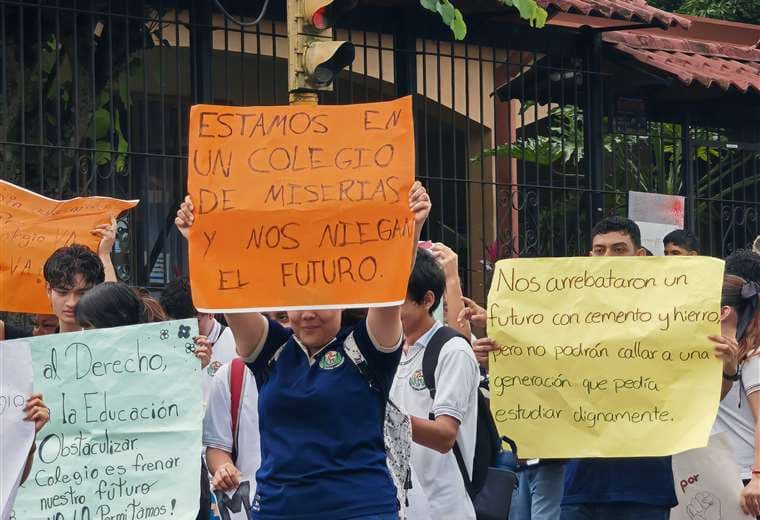 ESTAMOS EN
UN COLEGIO
DE MISERIAS
Y NOS NIEGAN
EL FUTURO.
Nos arrebataron un
futuro con cemento y hierro,
pero no podrán callar a una
generación que pedía
estudiar dignamente.
al Derecho,
la Educación
Obstaculizar
Colegio es frenar
nuestro futuro
NO LO Permitamos!
VA
VA
por